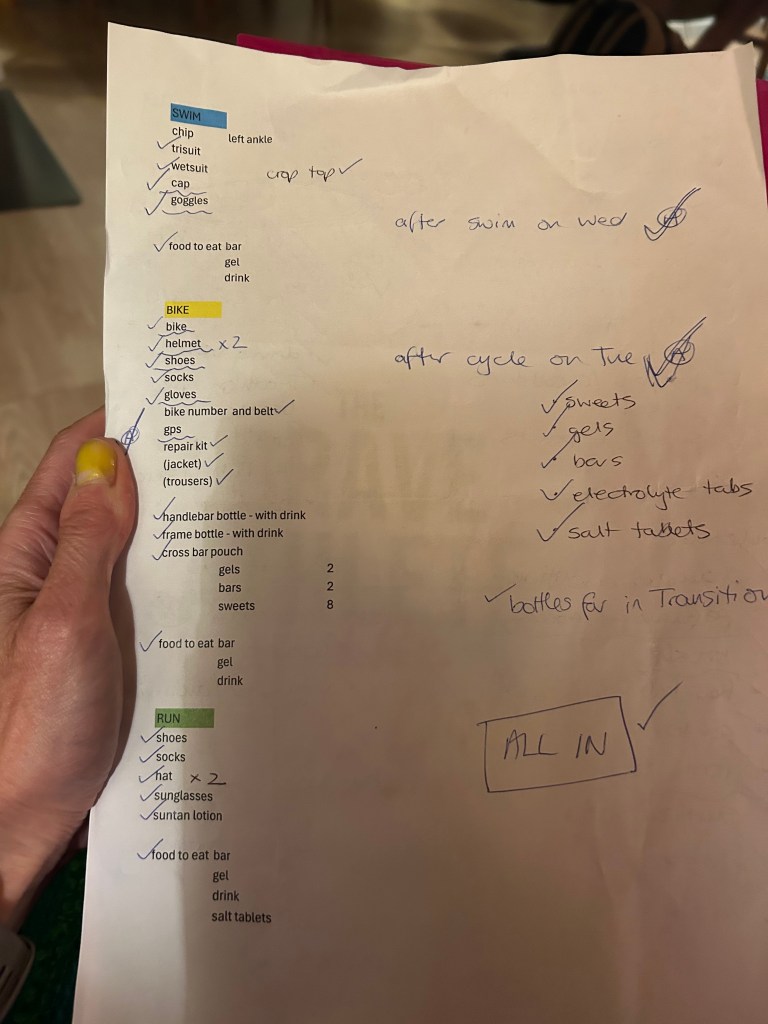 SWIM
chip left ankle
trisuit
wetsuit crop top
cap
goggles
after swim on wed
food to eat bar
gel
drink
BIKE
bike
helmet x2
shoes after cycle on Tue
socks
gloves sweets
bike number and belt
gps gels
repair kit
(jacket) bars
(trousers)
electrolyte tabs
handlebar bottle - with drink
frame bottle - with drink salt tablets
cross bar pouch
gels 2
bars 2
sweets 8 bottles for in Transition
food to eat bar
gel
drink
RUN
shoes
socks ALL IN
hat x 2
sunglasses
suntan lotion
food to eat bar
gel
drink
salt tablets